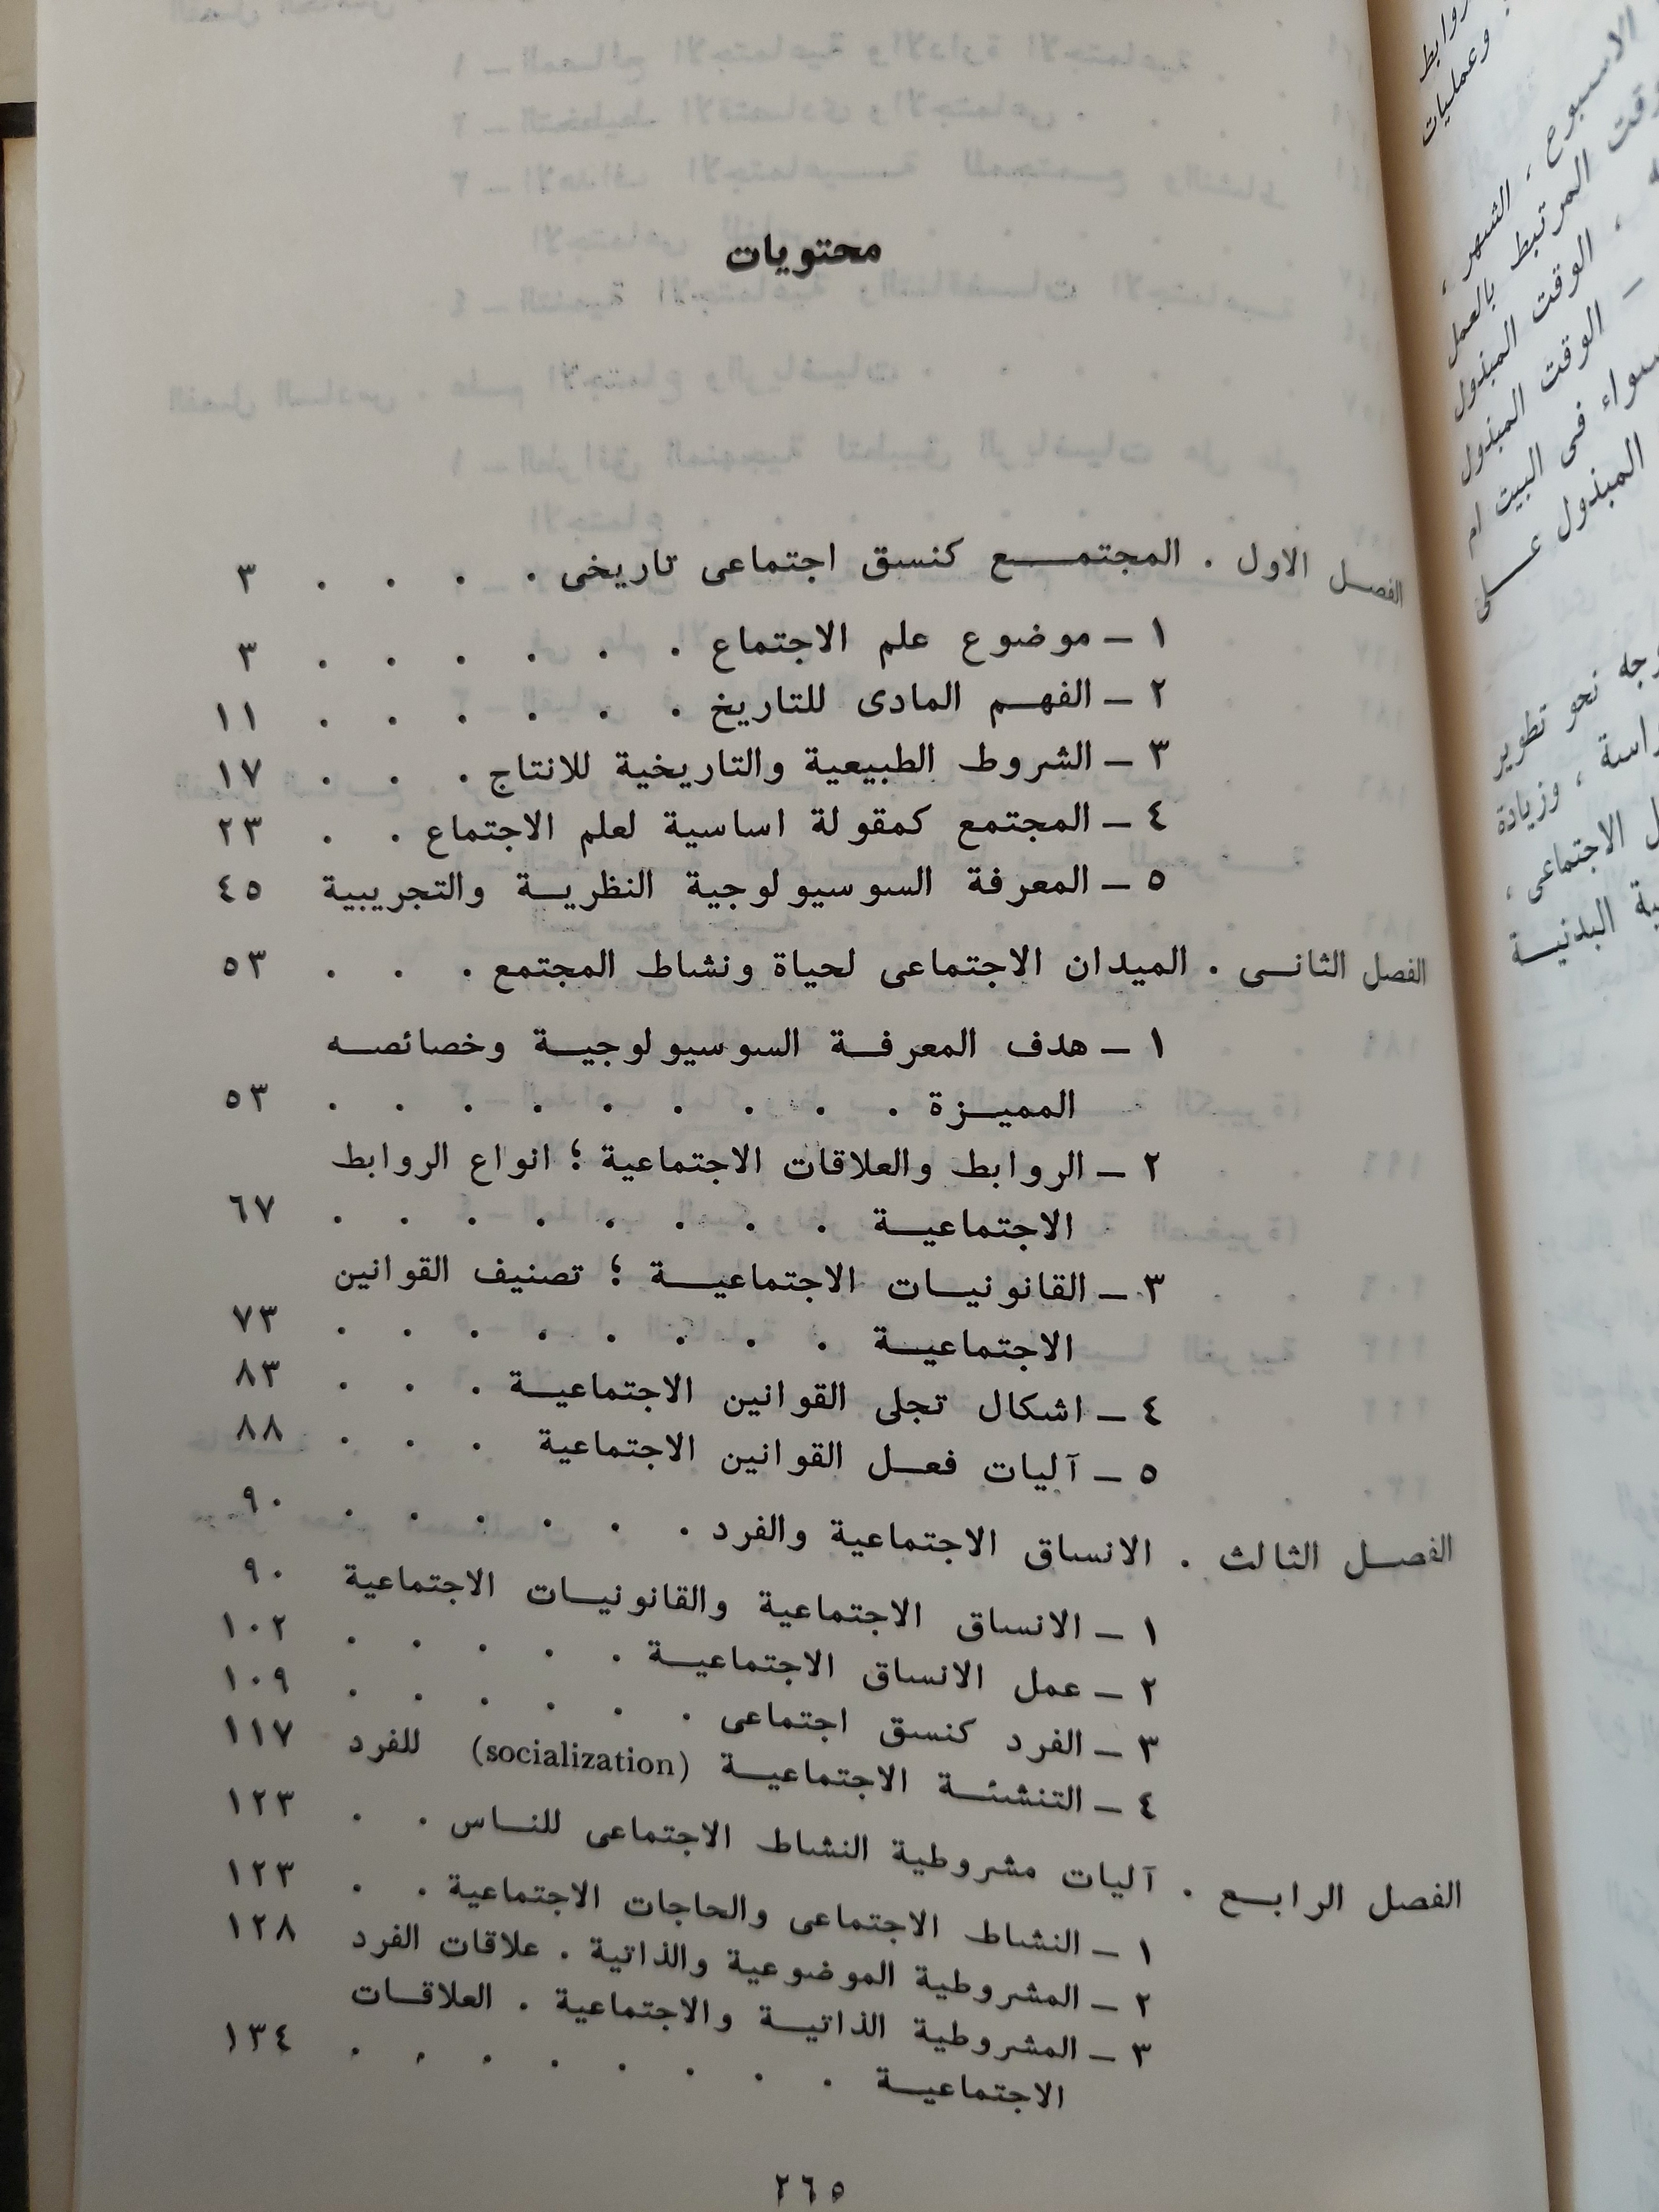 محتويات
الفصل الاول . المجتمع كنسق اجتماعى تاريخى . . . . ٣
١ ــ موضوع علم الاجتماع . . . . . . ٣
٢ ــ الفهم المادى للتاريخ . . . . . . ١١
٣ ــ الشروط الطبيعية والتاريخية للانتاج . . . ١٧
٤ ــ المجتمع كمقولة اساسية لعلم الاجتماع . . ٢٣
٥ ــ المعرفة السوسيولوجية النظرية والتجريبية ٤٥
الفصل الثانى . الميدان الاجتماعى لحياة ونشاط المجتمع . . . ٥٣
١ ــ هدف المعرفة السوسيولوجية وخصائصه
المميزة . . . . . . . . . ٥٣
٢ ــ الروابط والعلاقات الاجتماعية ؛ انواع الروابط
الاجتماعية . . . . . . . . ٦٧
٣ ــ القانونيات الاجتماعية ؛ تصنيف القوانين
الاجتماعية . . . . . . . . ٧٣
٤ ــ اشكال تجلى القوانين الاجتماعية . . . ٨٣
٥ ــ آليات فعل القوانين الاجتماعية . . . ٨٨
الفصل الثالث . الانساق الاجتماعية والفرد . . . . . . ٩٠
١ ــ الانساق الاجتماعية والقانونيات الاجتماعية ٩٠
٢ ــ عمل الانساق الاجتماعية . . . . . ١٠٢
٣ ــ الفرد كنسق اجتماعى . . . . . . ١٠٩
٤ ــ التنشئة الاجتماعية (socialization) للفرد ١١٧
الفصل الرابع . آليات مشروطية النشاط الاجتماعى للناس . . ١٢٣
١ ــ النشاط الاجتماعى والحاجات الاجتماعية . . ١٢٣
٢ ــ المشروطية الموضوعية والذاتية . علاقات الفرد ١٢٨
٣ ــ المشروطية الذاتية والاجتماعية . العلاقات
الاجتماعية . . . . . . . . ١٣٤
٢٦٥
وعمليات
الاسبوع ، الشهر ،
المرتبط بالعمل
، الوقت المبذول
ــ الوقت المبذول
سواء فى البيت ام
المبذول على
نحو تطوير
، وزيادة
الاجتماعى ،
البدنية